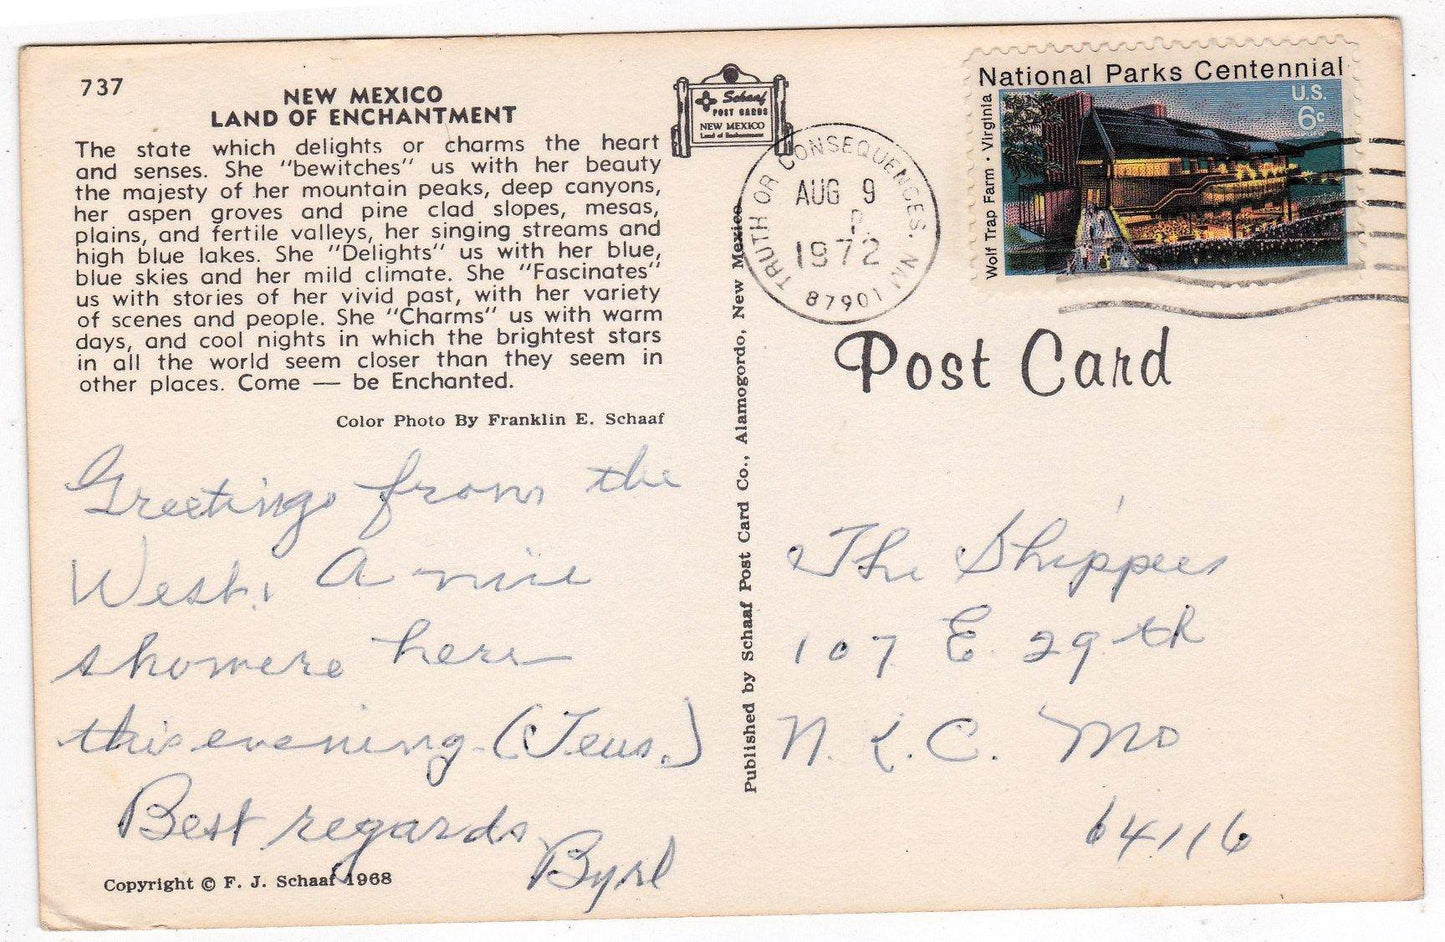 737
NEW MEXICO
LAND OF ENCHANTMENT
The state which delights or charms the heart
and senses. She "bewitches" us with her beauty
the majesty of her mountain peaks, deep canyons,
her aspen groves and pine clad slopes, mesas,
plains, and fertile valleys, her singing streams and
high blue lakes. She "Delights" us with her blue,
blue skies and her mild climate. She "Fascinates"
us with stories of her vivid past, with her variety
of scenes and people. She "Charms" us with warm
days, and cool nights in which the brightest stars
in all the world seem closer than they seem in
other places. Come — be Enchanted.
Color Photo By Franklin E. Schaaf
Greetings from the
West. A nice
shower here
this evening (Tues.)
Best regards
Byrl
Copyright © F. J. Schaaf 1968
Schaaf
POST CARDS
NEW MEXICO
Land of Enchantment
Published by Schaaf Post Card Co., Alamogordo, New Mexico
TRUTH OR CONSEQUENCES, NM
AUG 9
P.
1972
87901
National Parks Centennial
Wolf Trap Farm · Virginia
U.S.
6c
Post Card
The Shippees
107 E. 29th
N.K.C. Mo
64116